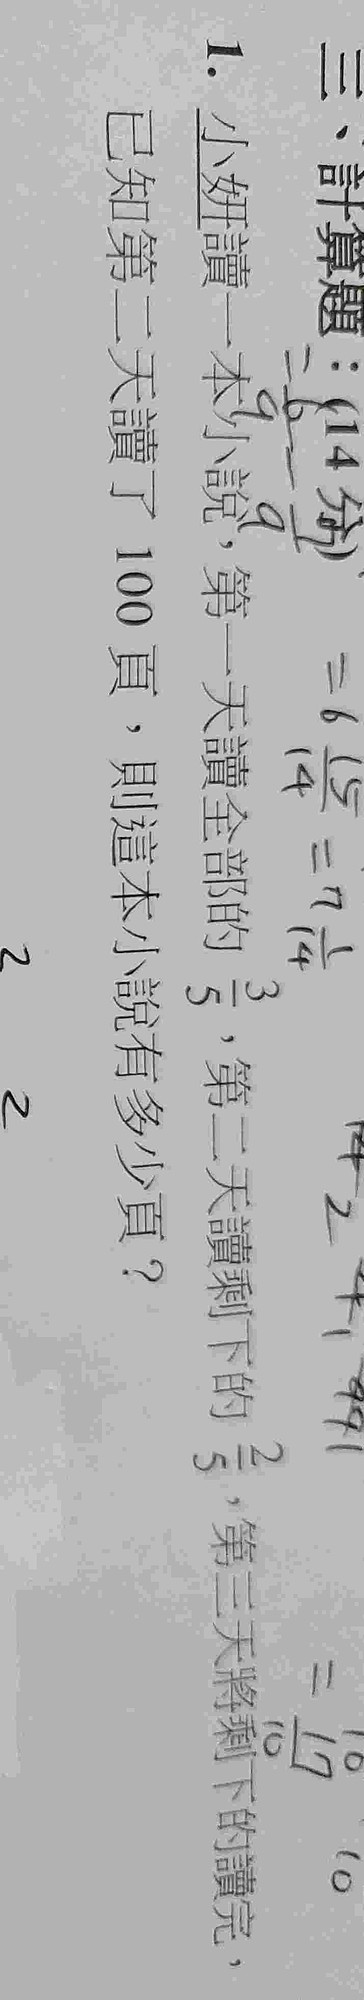 三、計算題：(14 分)
= 6/9 - 1/9
= 6 15/14 = 7 1/14
= 17/10
1. 小妍讀一本小說，第一天讀全部的 3/5，第二天讀剩下的 2/5，第三天將剩下的讀完，
已知第二天讀了 100 頁，則這本小說有多少頁？
2 2